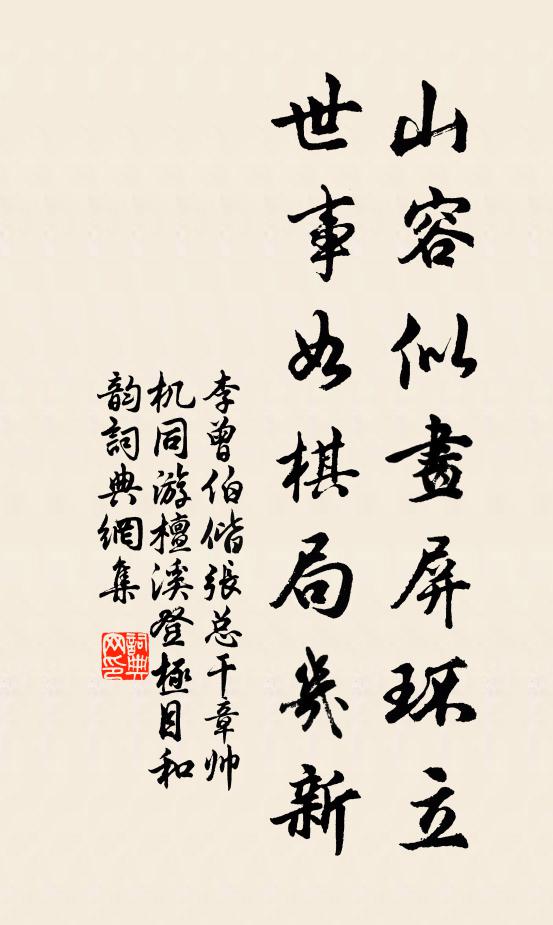 山容似畫屏環立
世事如棋局幾新
李曾伯偕張总干章帅
机同游檀溪登極目和
韵詞典網集
詞典
网印